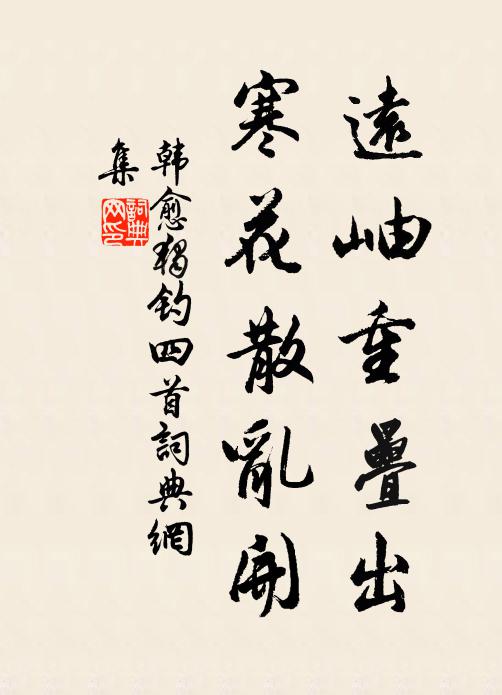 遠岫重疊出
寒花散亂開
韓愈獨釣四首詞典網
集
詞典網印